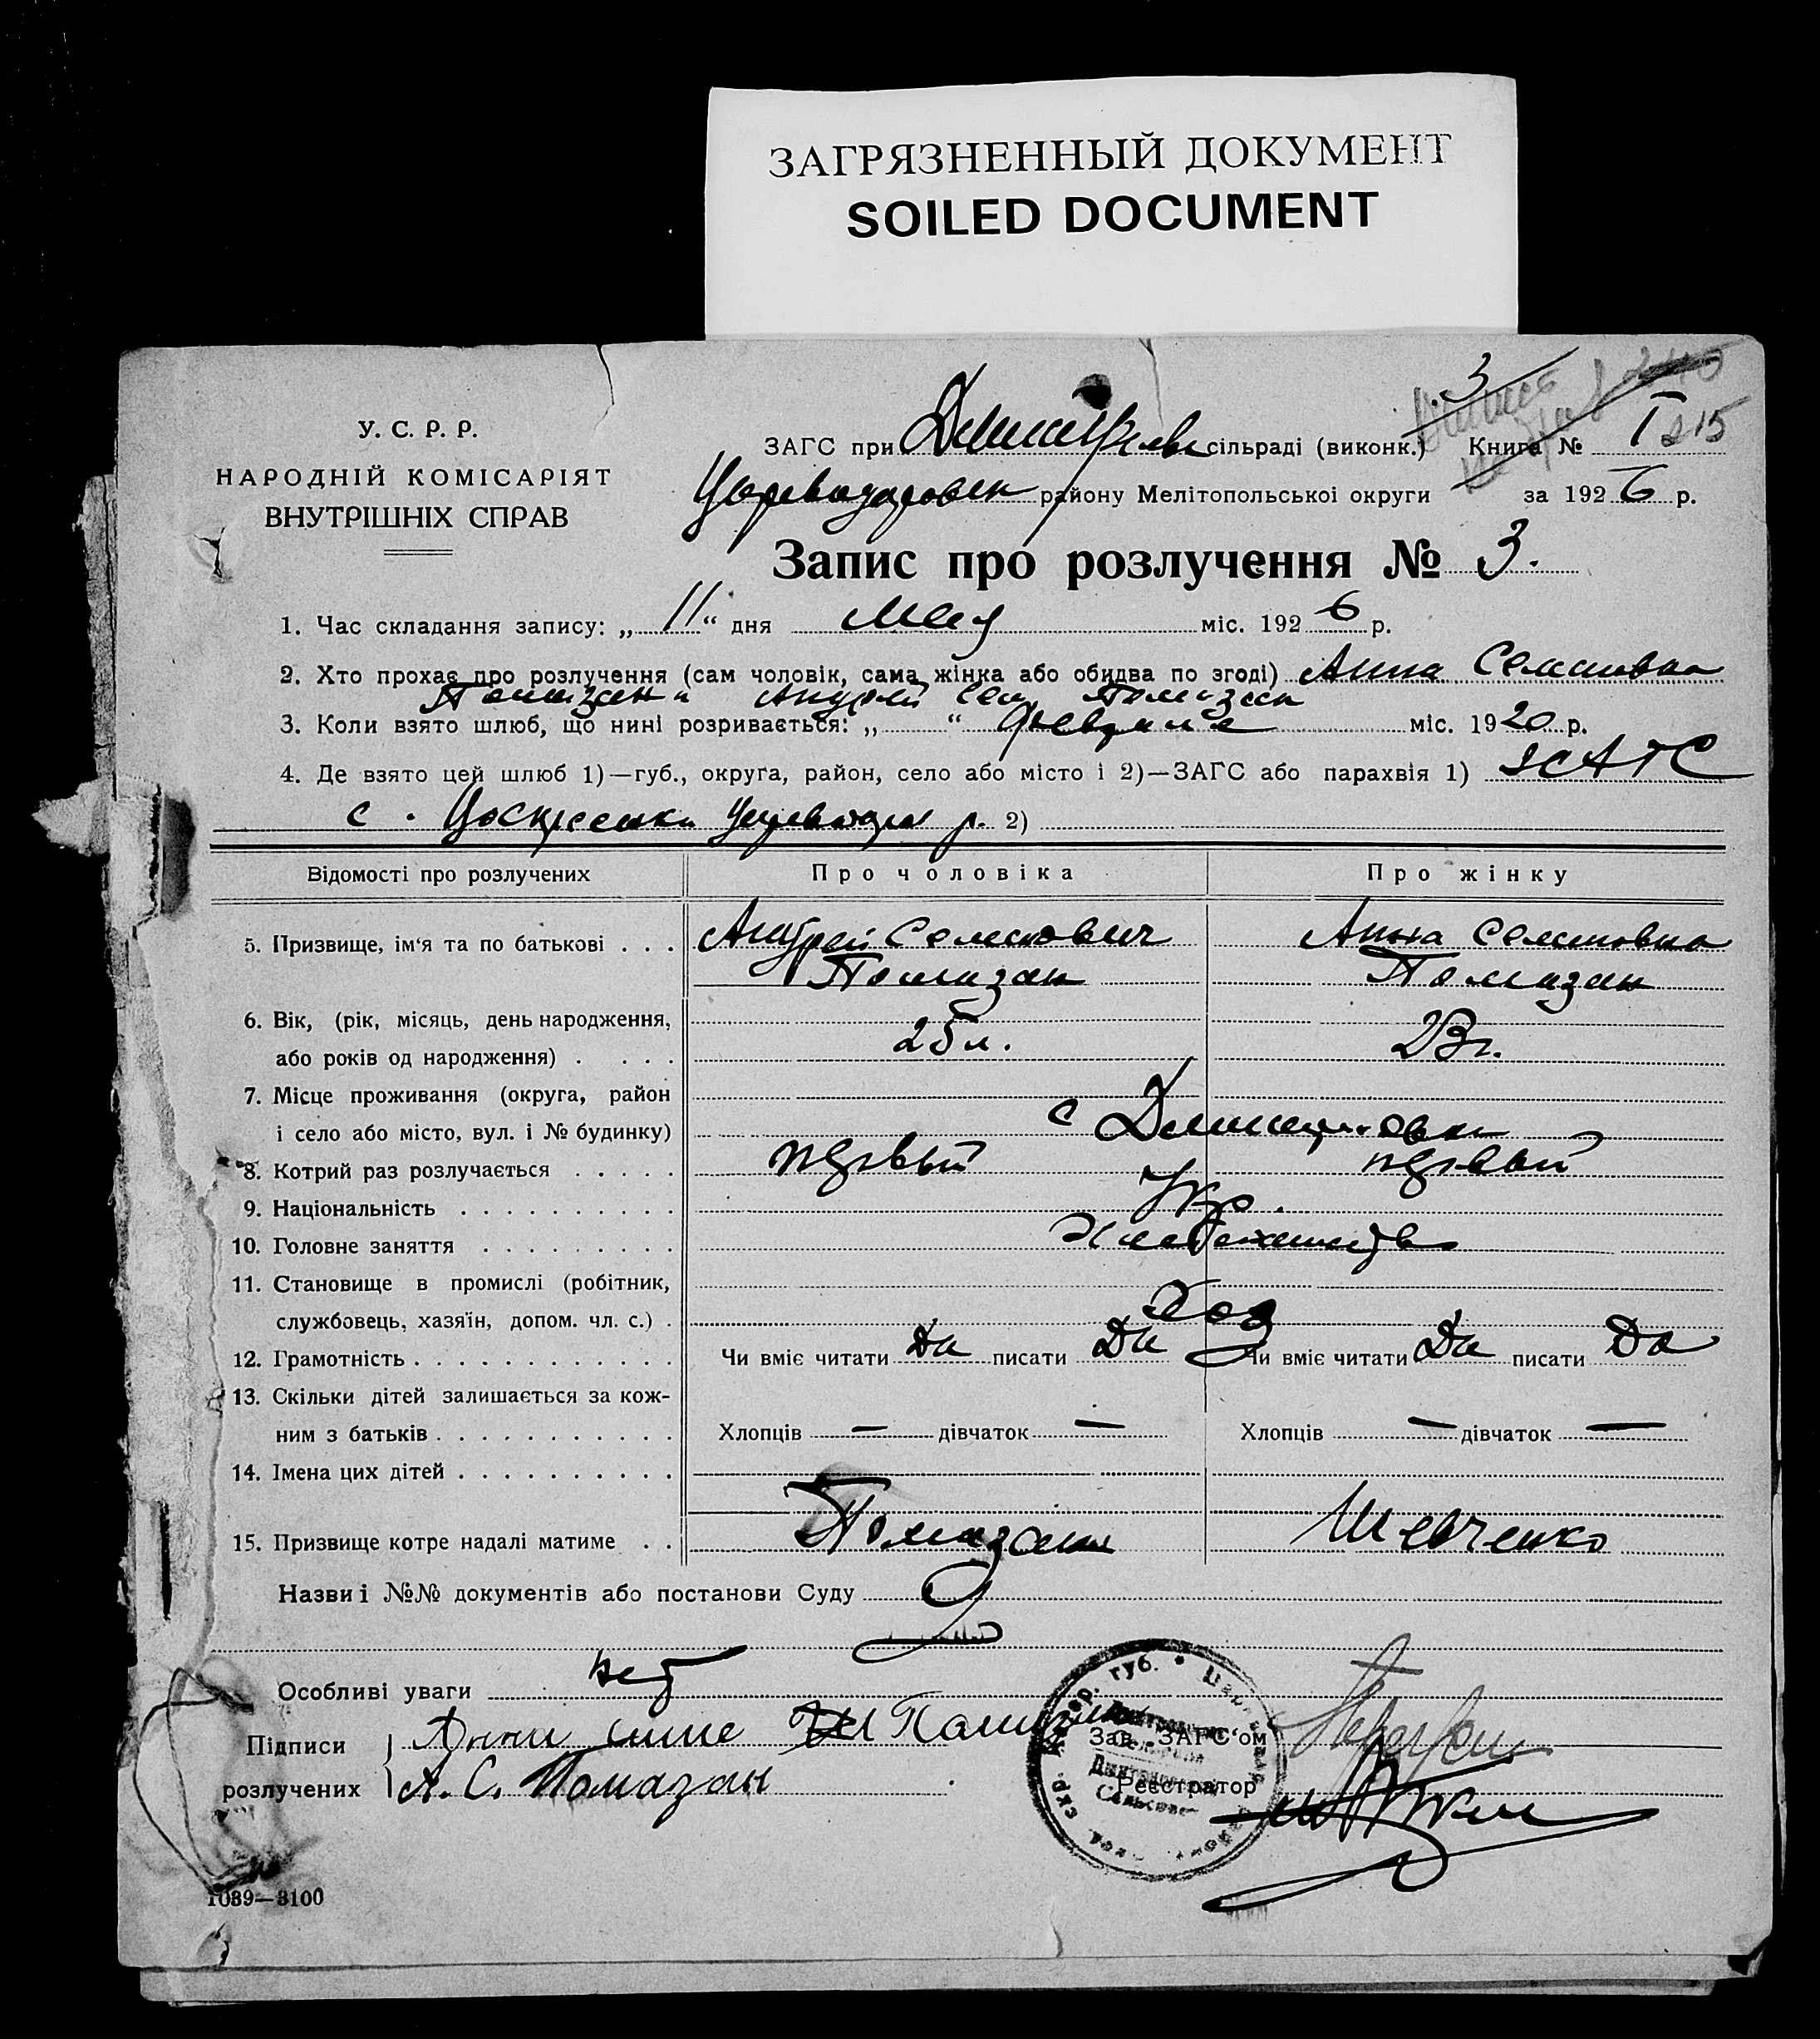 ЗАГРЯЗНЕННЫЙ ДОКУМЕНТ
SOILED DOCUMENT
3
У. С. Р. Р.
НАРОДНІЙ КОМІСАРІЯТ
ВНУТРІШНІХ СПРАВ
ЗАГС при сільраді (виконк.) Книга № I 215
району Мелітопольської округи за 1926 р.
Запис про розлучення № 3.
1. Час складання запису: „ 11 “ дня мая міс. 1926 р.
2. Хто прохає про розлучення (сам чоловік, сама жінка або обидва по згоді) Анна Семеновна
Помазан и Андрей Сем Помазан
3. Коли взято шлюб, що нині розривається: „ “ февраля міс. 1920 р.
4. Де взято цей шлюб 1)—губ., округа, район, село або місто і 2)—ЗАГС або парахвія 1) ЗАГС
с. р. 2)
Відомості про розлучених Про чоловіка Про жінку
5. Призвище, ім'я та по батькові . . . Андрей Семенович Анна Семеновна
Помазан Помазан
6. Вік, (рік, місяць, день народження,
або років од народження) . . . . 25 л. 23 г.
7. Місце проживання (округа, район
і село або місто, вул. і № будинку) с Дмитровка
8. Котрий раз розлучається . . . . . первый первый
9. Національність . . . . . . . . . . Укр.
10. Головне заняття . . . . . . . . . Хлебопашество
11. Становище в промислі (робітник,
службовець, хазяїн, допом. чл. с.) . Хоз
12. Грамотність . . . . . . . . . . . . Чи вміє читати Да писати Да Чи вміє читати Да писати Да
13. Скільки дітей залишається за кож-
ним з батьків . . . . . . . . . . . Хлопців — дівчаток — Хлопців — дівчаток —
14. Імена цих дітей . . . . . . . . . .
15. Призвище котре надалі матиме . . Помазан Шевченко
Назви і №№ документів або постанови Суду
Особливі уваги нет
Підписи
розлучених
Анна
А. С. Помазан
Зав. „ЗАГС'ом“
Реєстратор
1039—3100